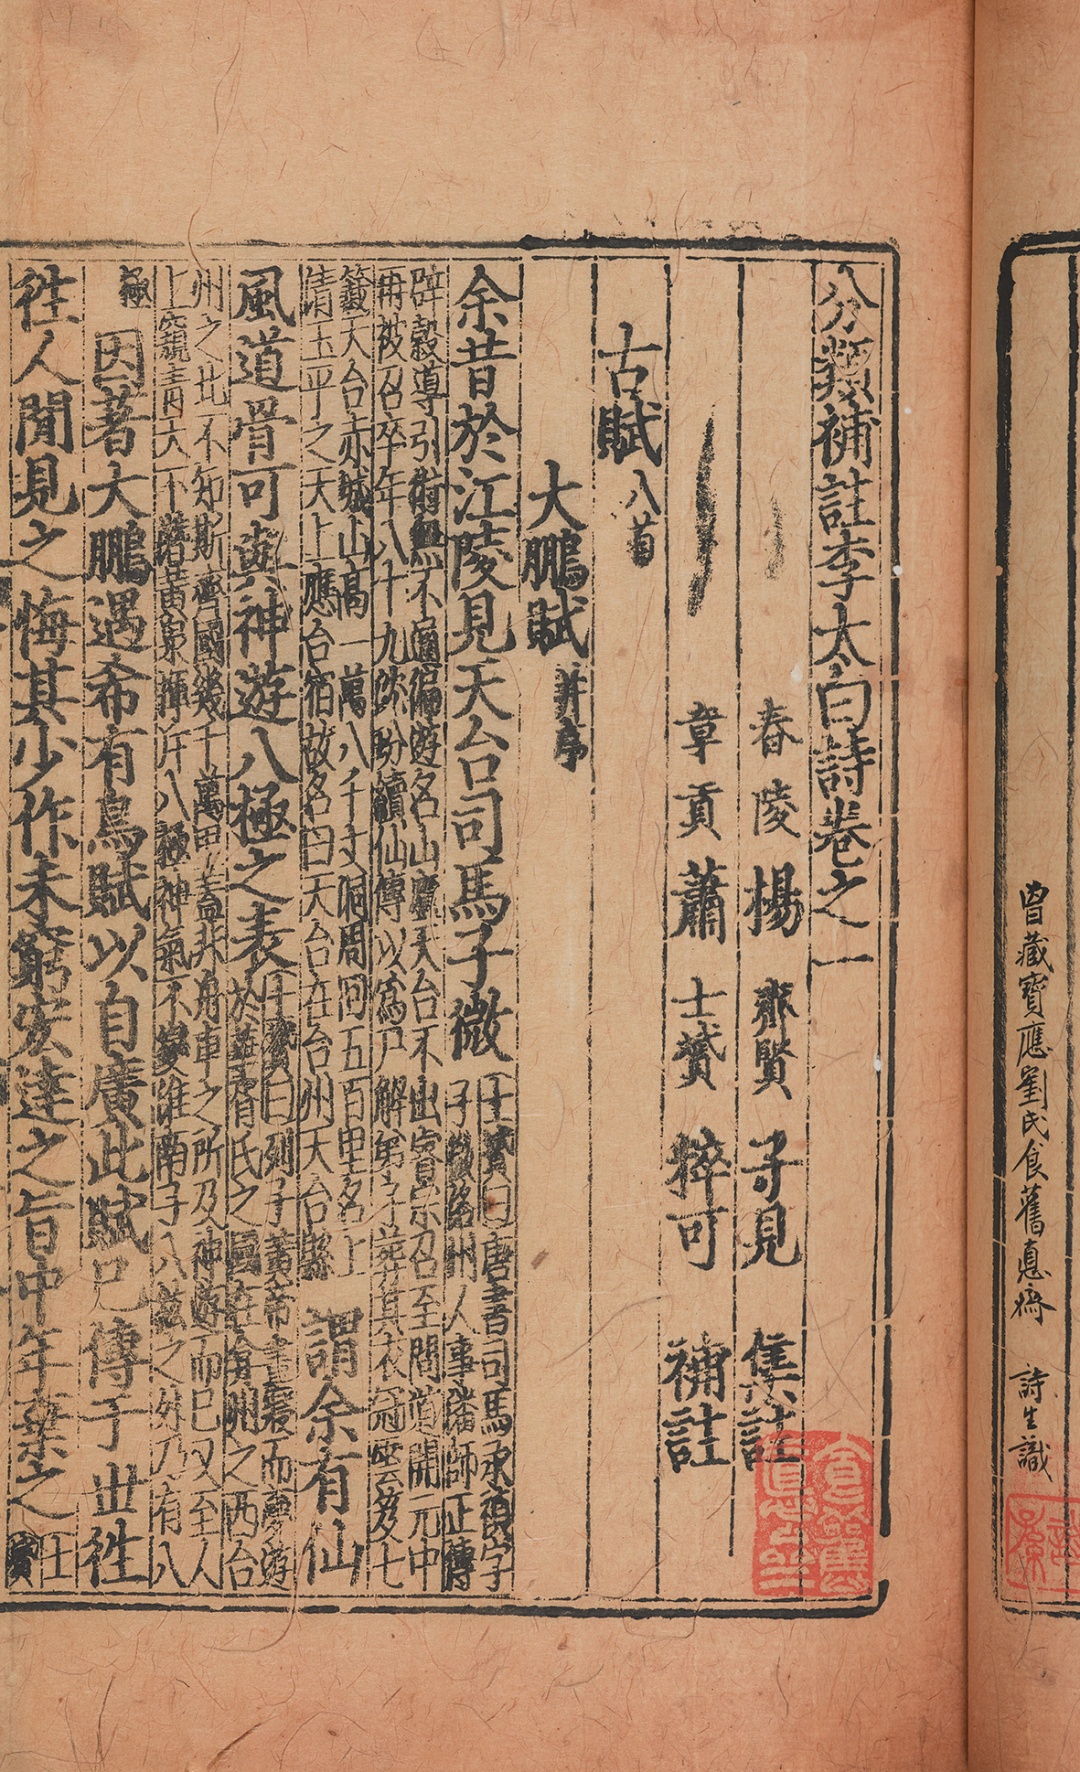 曾藏寶應劉氏食舊悳齋 詩生識
八分類補註李太白詩卷之一
舂陵楊 齊賢 子見 集註
章貢蕭 士贇 粹可 補註
古賦八首
大鵬賦并序
余昔於江陵見天台司馬子微
士贇曰唐書司馬承禎字
子微洛州人事潘師正傳
辟穀導引術無不通徧遊名山廬天台不出睿宗召至問道開元中
再被召卒年八十九沈汾續仙傳以爲尸解弟子葬其衣冠雲笈七
籤天台赤城山高一萬八千丈洞周回五百里名上
清玉平之天上應台宿故名曰天台在台州天台縣
謂余有仙
風道骨可與神遊八極之表
士贇曰列子黃帝晝寢而夢遊
於華胥氏之國在弇州之西台
州之北不知斯齊國幾千萬里蓋非舟車之所及神遊而已又至人
上窺青天下潛黃泉揮斥八極神氣不變淮南子八紘之外乃有八
極
因著大鵬遇希有鳥賦以自廣此賦已傳于世徃
徃人間見之悔其少作未窮宏達之旨中年棄之
士
贇